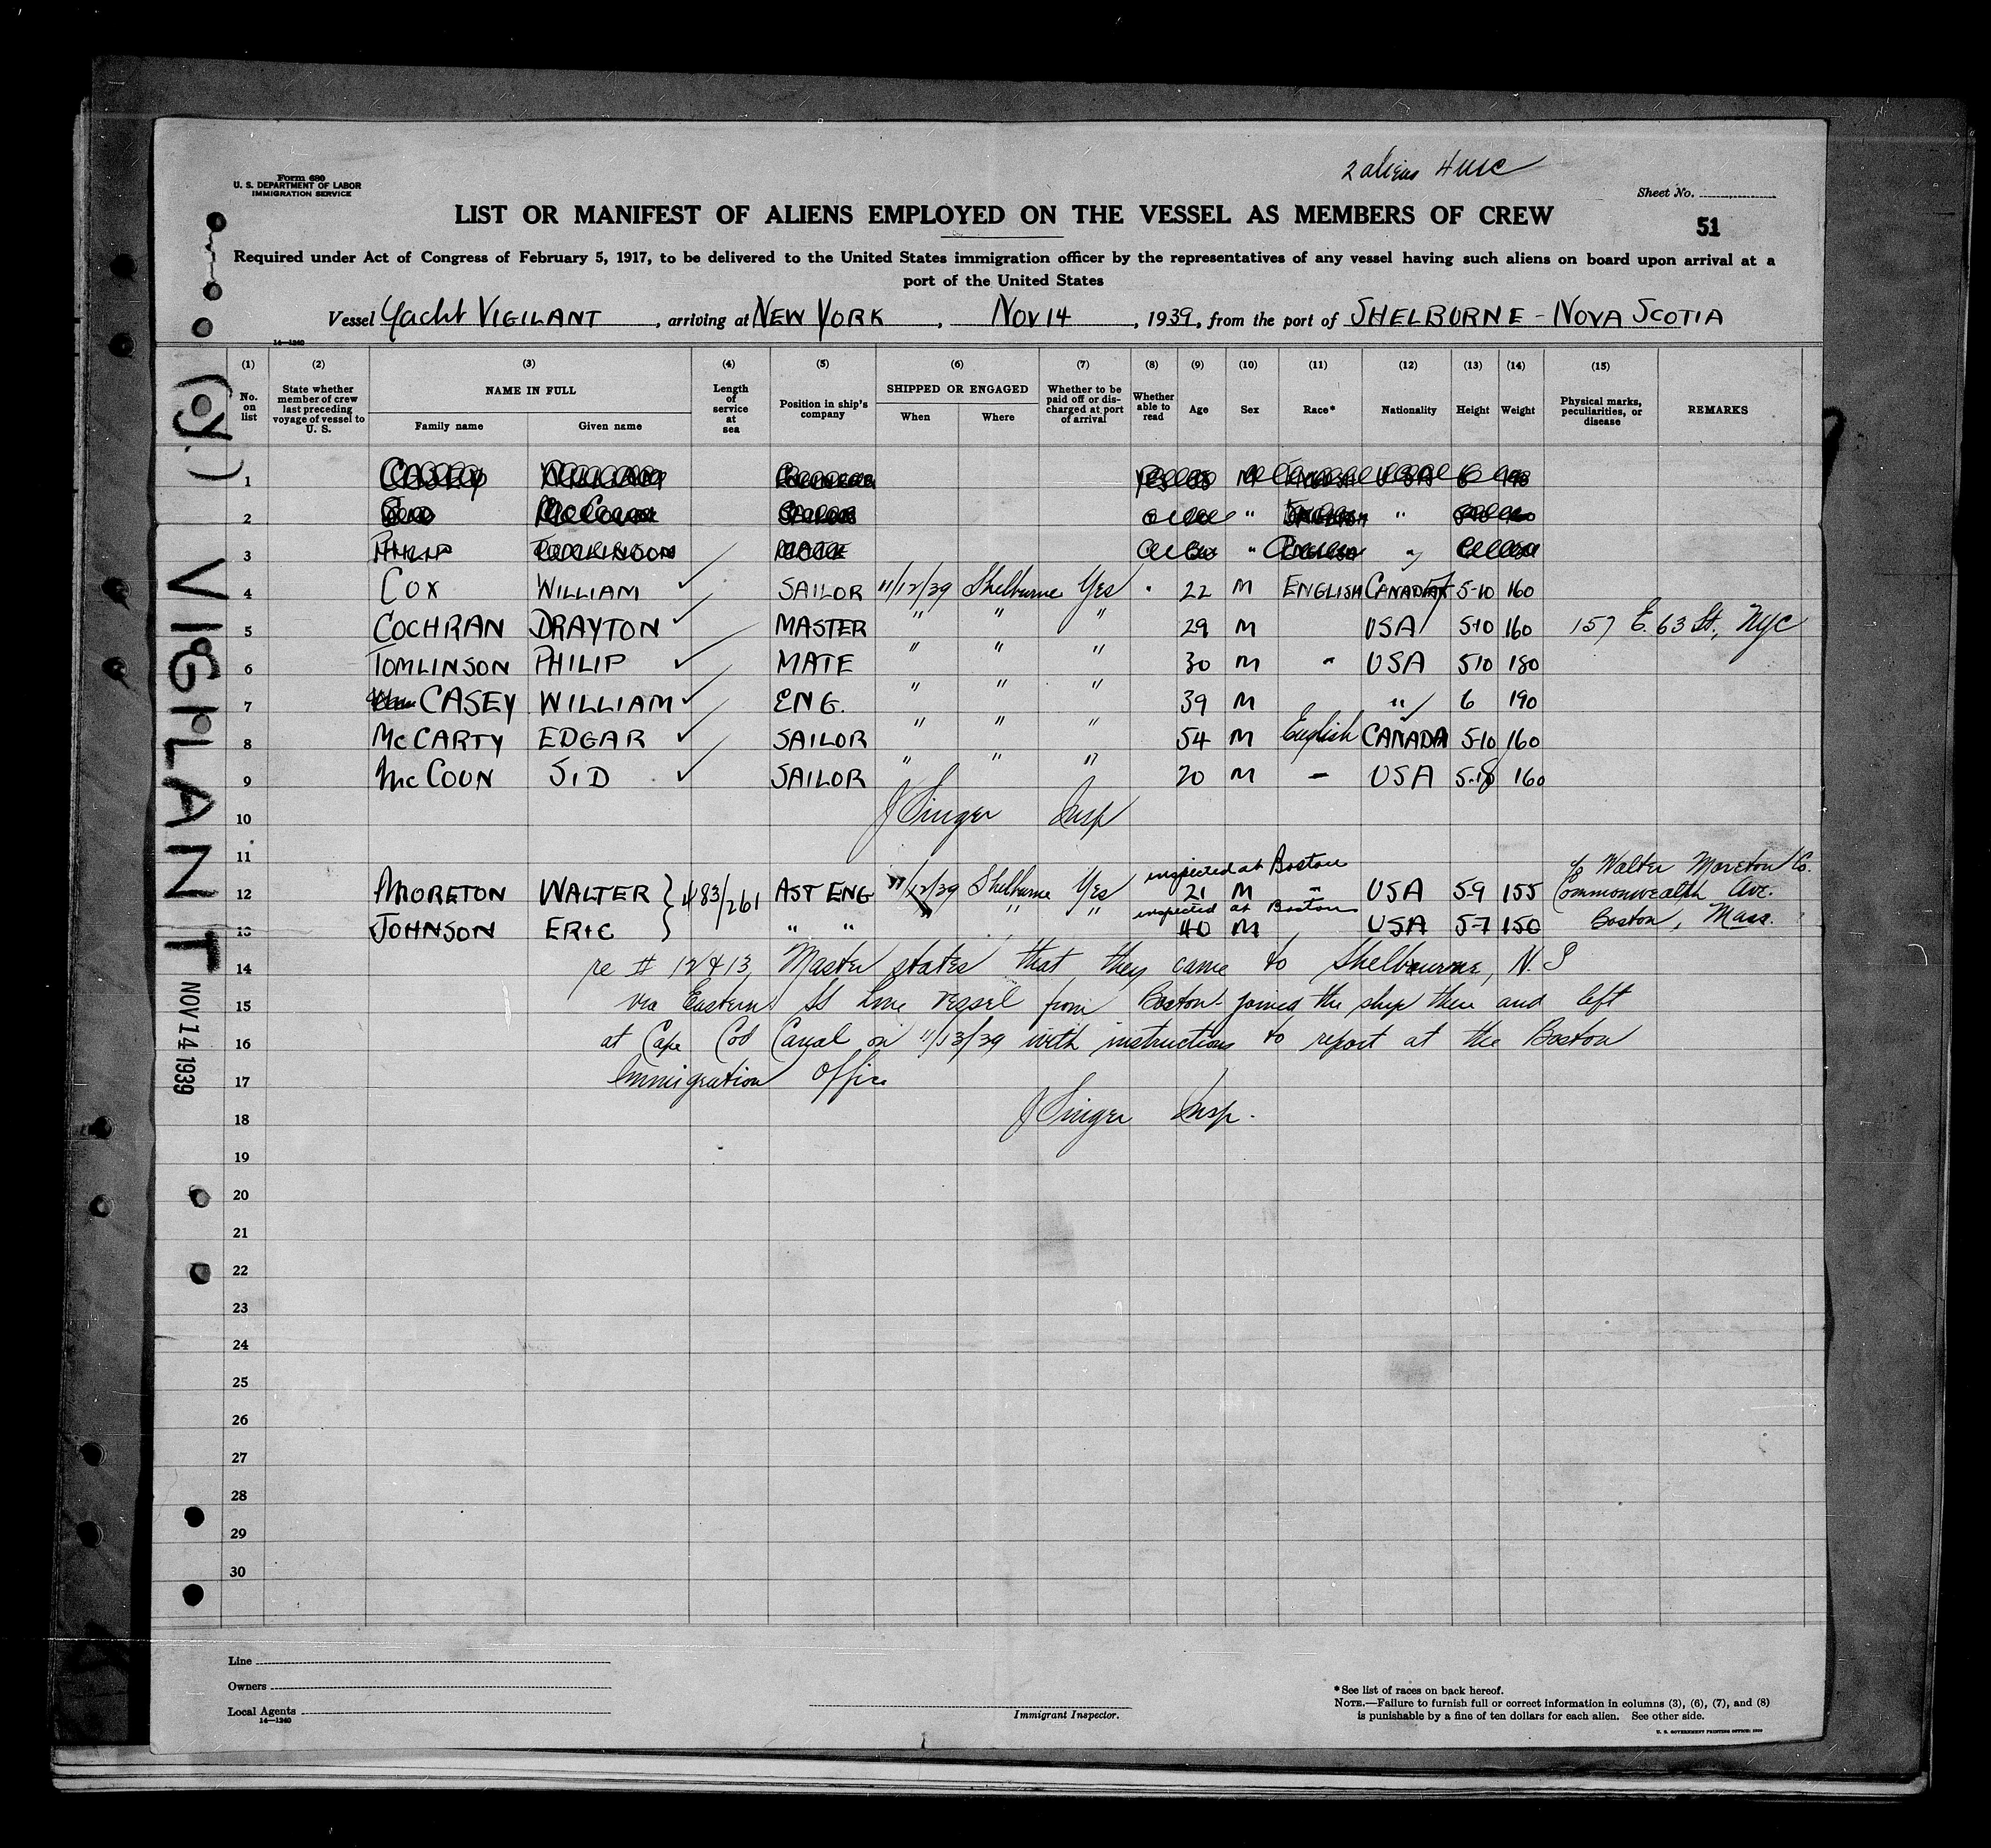 2 aliens 4 USC
Form 680
U. S. DEPARTMENT OF LABOR
IMMIGRATION SERVICE
Sheet No.
LIST OR MANIFEST OF ALIENS EMPLOYED ON THE VESSEL AS MEMBERS OF CREW
51
Required under Act of Congress of February 5, 1917, to be delivered to the United States immigration officer by the representatives of any vessel having such aliens on board upon arrival at a
port of the United States
Vessel Yacht VIGILANT, arriving at NEW YORK, NOV 14, 1939, from the port of SHELBURNE - NOVA SCOTIA
14—1240
(1) (2) (3) (4) (5) (6) (7) (8) (9) (10) (11) (12) (13) (14) (15)
No. on list
State whether member of crew last preceding voyage of vessel to U. S.
NAME IN FULL
Family name
Given name
Length of service at sea
Position in ship's company
SHIPPED OR ENGAGED
When
Where
Whether to be paid off or discharged at port of arrival
Whether able to read
Age
Sex
Race*
Nationality
Height
Weight
Physical marks, peculiarities, or disease
REMARKS
1 CASEY WILLIAM M USA 6 190
2 SAILOR " "
3 PHILIP TOMLINSON MATE " ENGLISH "
4 COX WILLIAM ✓ SAILOR 11/12/39 Shelburne Yes " 22 M ENGLISH CANADA 5-10 160
5 COCHRAN DRAYTON ✓ MASTER " " " 29 M USA 5-10 160 157 E. 63 St., NYC
6 TOMLINSON PHILIP ✓ MATE " " " 30 M " USA 5-10 180
7 CASEY WILLIAM ✓ ENG. " " " 39 M " 6 190
8 McCARTY EDGAR ✓ SAILOR " " " 54 M English CANADA 5-10 160
9 McCOUN SID ✓ SAILOR " " " 20 M - USA 5-10 160
10 J Singer Insp
11 inspected at Boston c/o Walter Moreton Co.
12 MORETON WALTER } 483/261 AST ENG 11/12/39 Shelburne Yes 21 M " USA 5-9 155 Commonwealth Ave.
inspected at Boston
13 JOHNSON ERIC } " " " " 40 M USA 5-7 150 Boston, Mass.
14 re # 12 & 13, Master states that they came to Shelbourne, N. S
15 via Eastern SS Line vessel from Boston - joined the ship there and left
16 at Cape Cod Canal on 11/13/39 with instructions to report at the Boston
17 Immigration Office
18 J Singer Insp.
19
20
21
22
23
24
25
26
27
28
29
30
(Oy.) VIGILANT NOV 14 1939
Line
Owners
Local Agents
14—1240
Immigrant Inspector.
*See list of races on back hereof.
NOTE.—Failure to furnish full or correct information in columns (3), (6), (7), and (8)
is punishable by a fine of ten dollars for each alien. See other side.